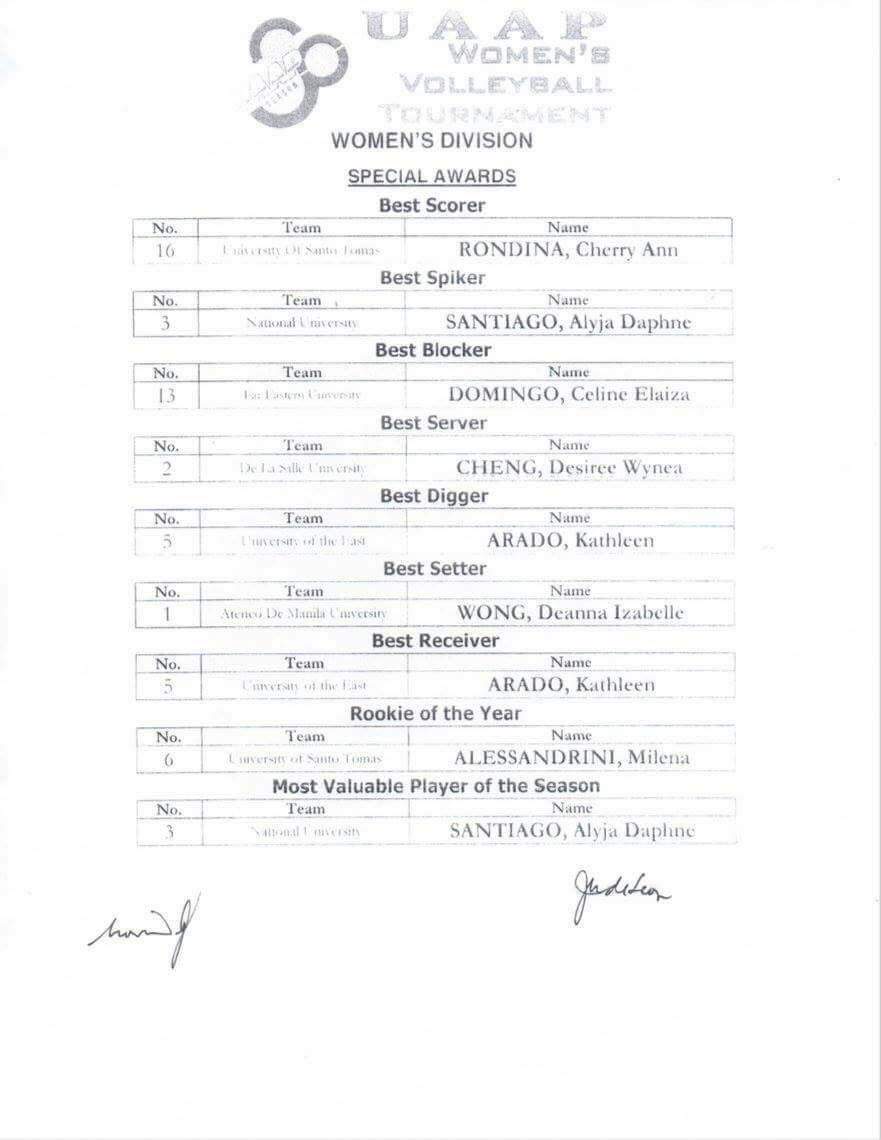 UAAP
WOMEN'S
VOLLEYBALL
TOURNAMENT
WOMEN'S DIVISION
SPECIAL AWARDS
Best Scorer
No. Team Name
16 University Of Santo Tomas RONDINA, Cherry Ann
Best Spiker
No. Team Name
3 National University SANTIAGO, Alyja Daphne
Best Blocker
No. Team Name
13 Far Eastern University DOMINGO, Celine Elaiza
Best Server
No. Team Name
2 De La Salle University CHENG, Desiree Wynea
Best Digger
No. Team Name
5 University of the East ARADO, Kathleen
Best Setter
No. Team Name
1 Ateneo De Manila University WONG, Deanna Izabelle
Best Receiver
No. Team Name
5 University of the East ARADO, Kathleen
Rookie of the Year
No. Team Name
6 University of Santo Tomas ALESSANDRINI, Milena
Most Valuable Player of the Season
No. Team Name
3 National University SANTIAGO, Alyja Daphne